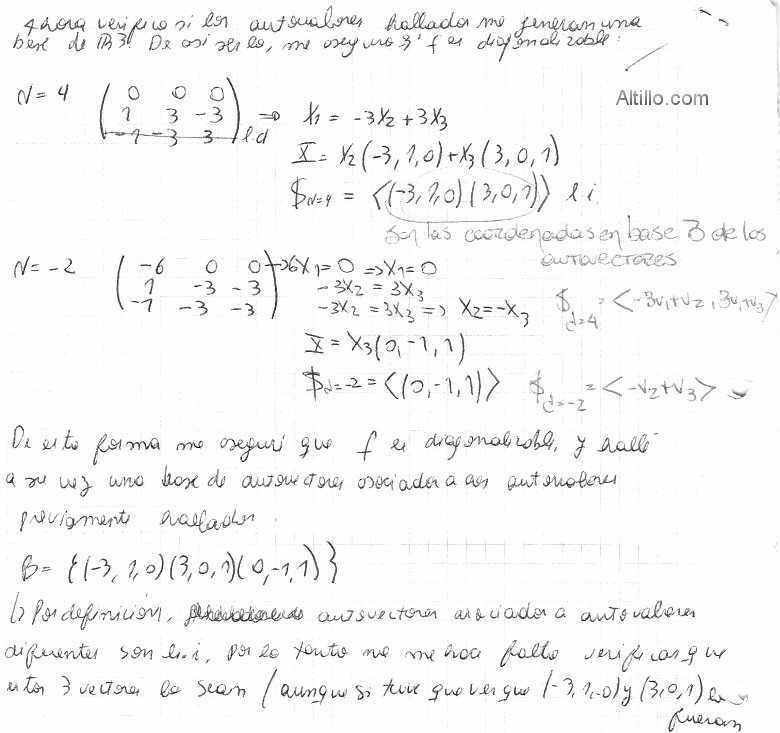 Ahora verifico si los autovalores hallados me generan una
base de R3. De así serlo, me aseguro q' f es diagonalizable:
Altillo.com
λ = 4 ( 0 0 0
1 3 -3
-1 -3 3 ) ld ⇒ X1 = -3X2 + 3X3
X = X2(-3,1,0) + X3(3,0,1)
Sλ=4 = ⟨(-3,1,0)(3,0,1)⟩ li
son las coordenadas en base B de los
autovectores
λ = -2 ( -6 0 0
1 -3 -3
-1 -3 -3 ) → 6X1 = 0 ⇒ X1 = 0
-3X2 = 3X3
-3X2 = 3X3 ⇒ X2 = -X3
Sλ=4 = ⟨-3v1+v2, 3v1+v3⟩
X = X3(0,-1,1)
Sλ=-2 = ⟨(0,-1,1)⟩ Sλ=-2 = ⟨-v2+v3⟩
De esta forma me aseguré que f es diagonalizable, y hallé
a su vez una base de autovectores asociados a los autovalores
previamente hallados.
B = {(-3,1,0)(3,0,1)(0,-1,1)}
↳ Por definición, autovectores asociados a autovalores
diferentes son l.i, por lo tanto no me hace falta verificar que
estos 3 vectores lo sean (aunque si tuve que ver que (-3,1,0) y (3,0,1) lo
fueran